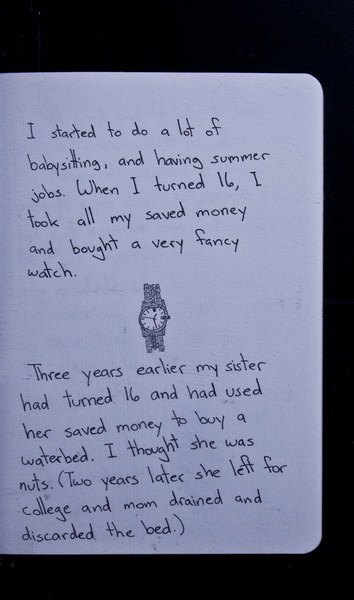 I started to do a lot of
babysitting, and having summer
jobs. When I turned 16, I
took all my saved money
and bought a very fancy
watch.
Three years earlier my sister
had turned 16 and had used
her saved money to buy a
waterbed. I thought she was
nuts. (Two years later she left for
college and mom drained and
discarded the bed.)